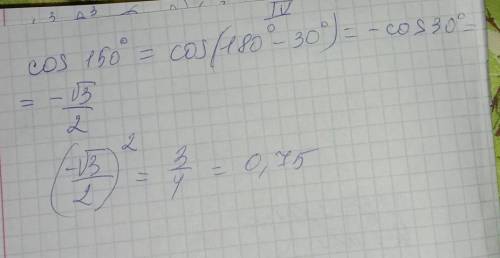 IV
cos 150° = cos(-180° - 30°) = - cos 30° =
= - √3/2
(-√3/2)² = 3/4 = 0,75